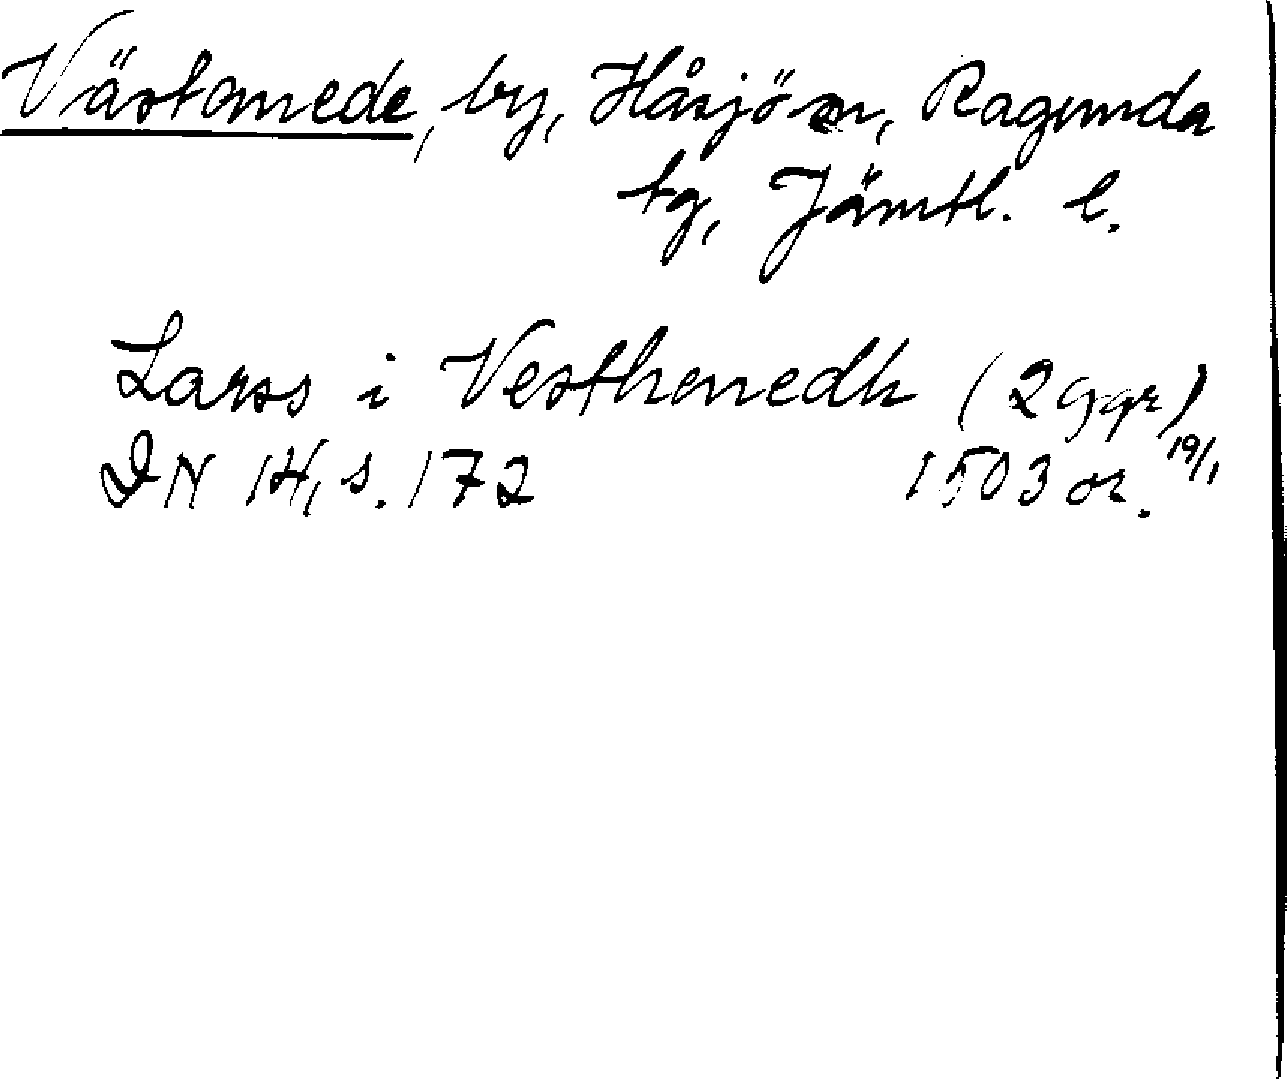 Västanede, by, Håsjö sn, Ragunda
tg, Jämtl. l.
Larss i Vesthanedh (2 ggr)
DN 14, s. 172 1503 or. 19/1